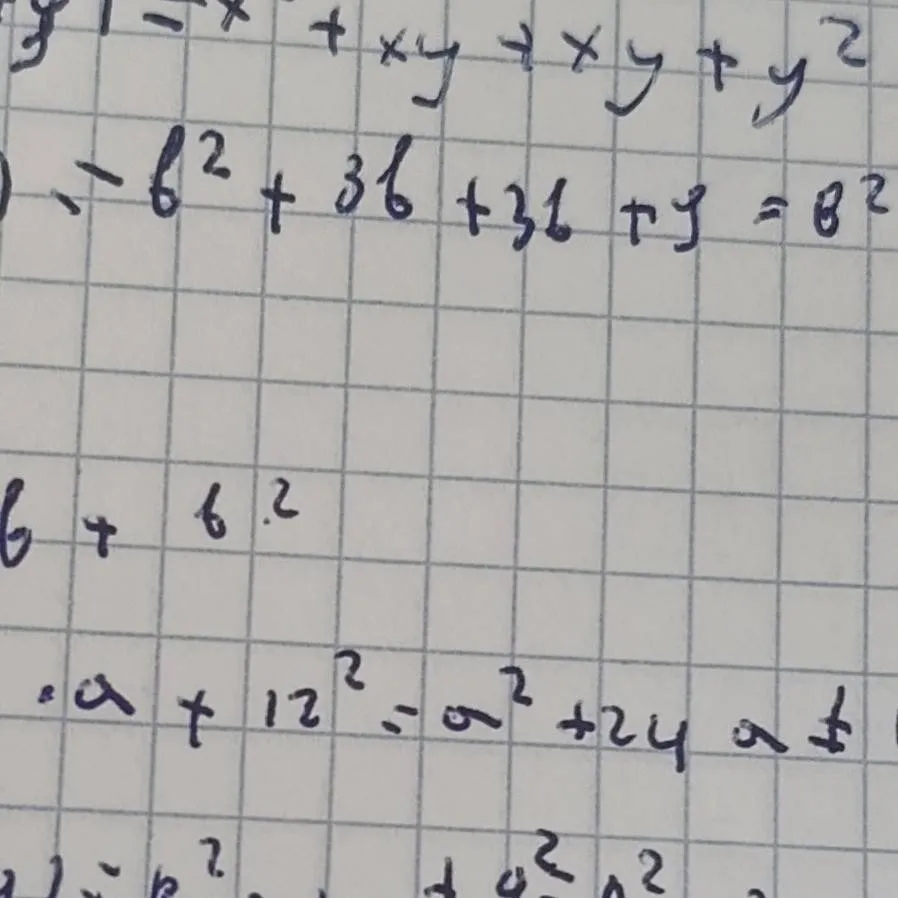 = x + xy + xy + y²
) = b² + 3b + 3b + 9 = b²
b + b²
· a + 12² = a² + 24 a +